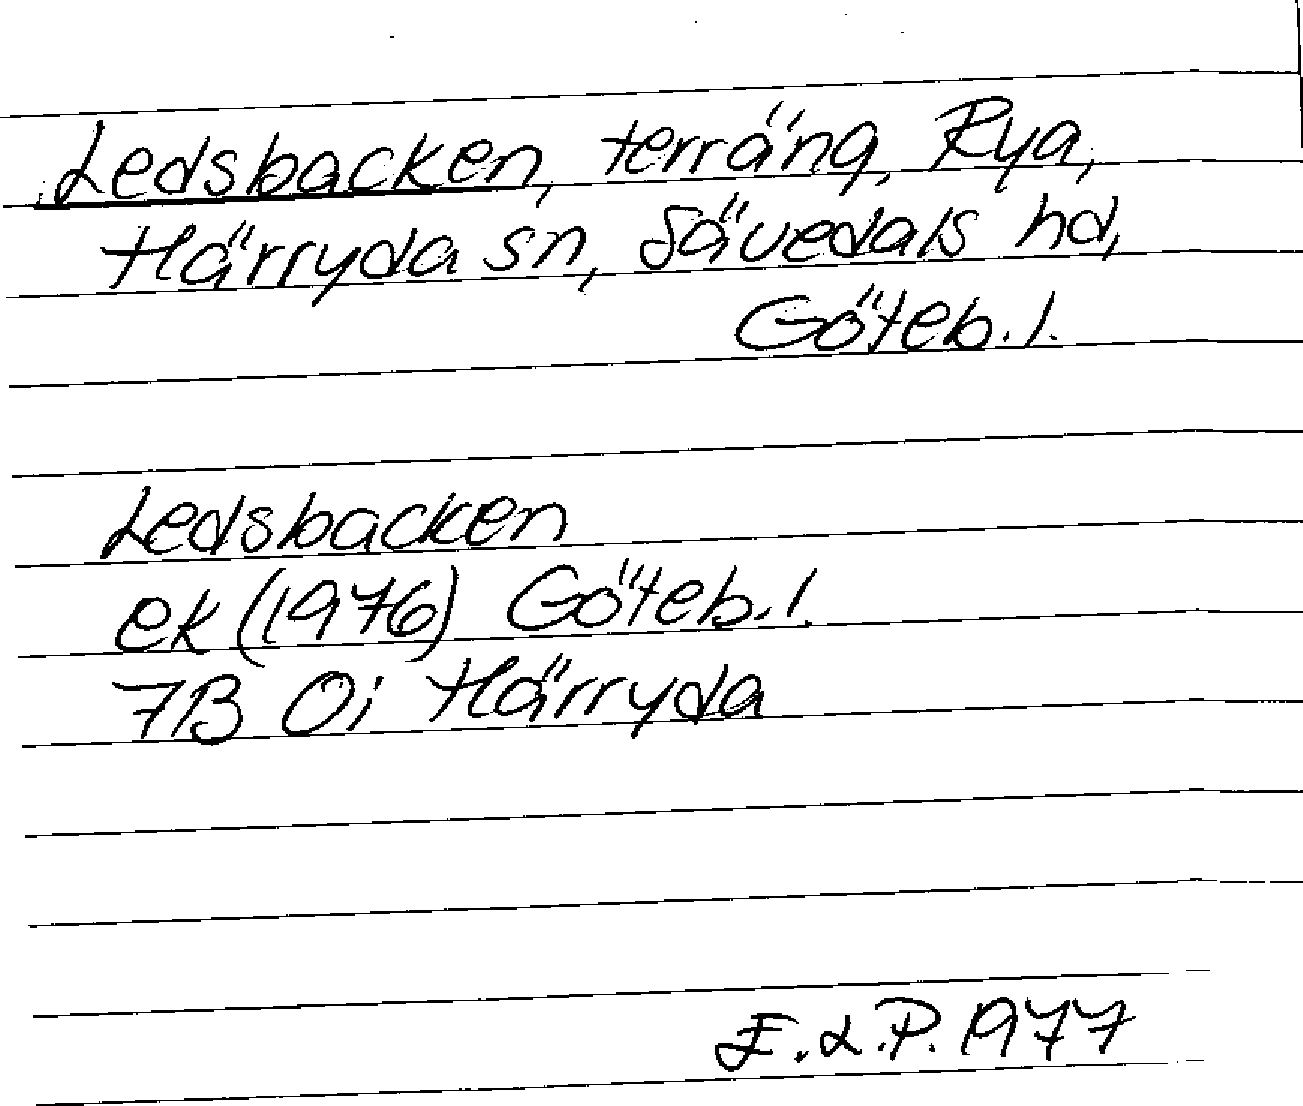 Ledsbacken, terräng, Rya,
Härryda sn, Sävedals hd,
Göteb. l.
Ledsbacken
ek (1976) Göteb. l.
7B 0i Härryda
E.L.P. 1977